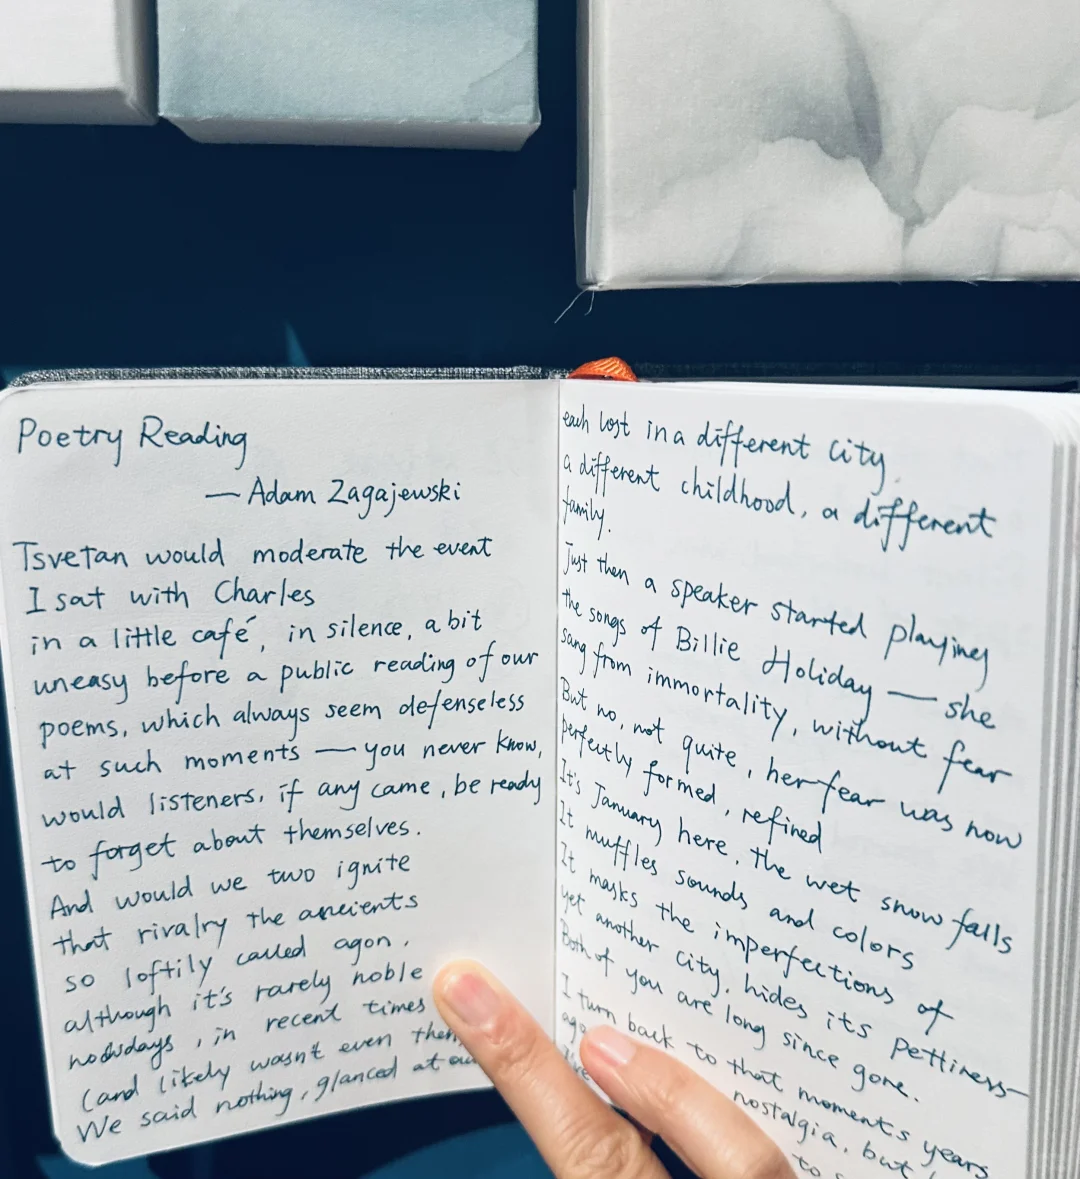 Poetry Reading
— Adam Zagajewski
Tsvetan would moderate the event
I sat with Charles
in a little café, in silence, a bit
uneasy before a public reading of our
poems, which always seem defenseless
at such moments — you never know,
would listeners, if any came, be ready
to forget about themselves.
And would we two ignite
that rivalry the ancients
so loftily called agon,
although it's rarely noble
nowdays, in recent times
(and likely wasn't even then
We said nothing, glanced at
each lost in a different city,
a different childhood, a different
family.
Just then a speaker started playing
the songs of Billie Holiday — she
sang from immortality, without fear
But no, not quite, her fear was now
perfectly formed, refined
It's January here, the wet snow falls
It muffles sounds and colors
It masks the imperfections of
yet another city, hides its pettiness—
Both of you are long since gone.
I turn back to that moments years
ago
nostalgia, but
to